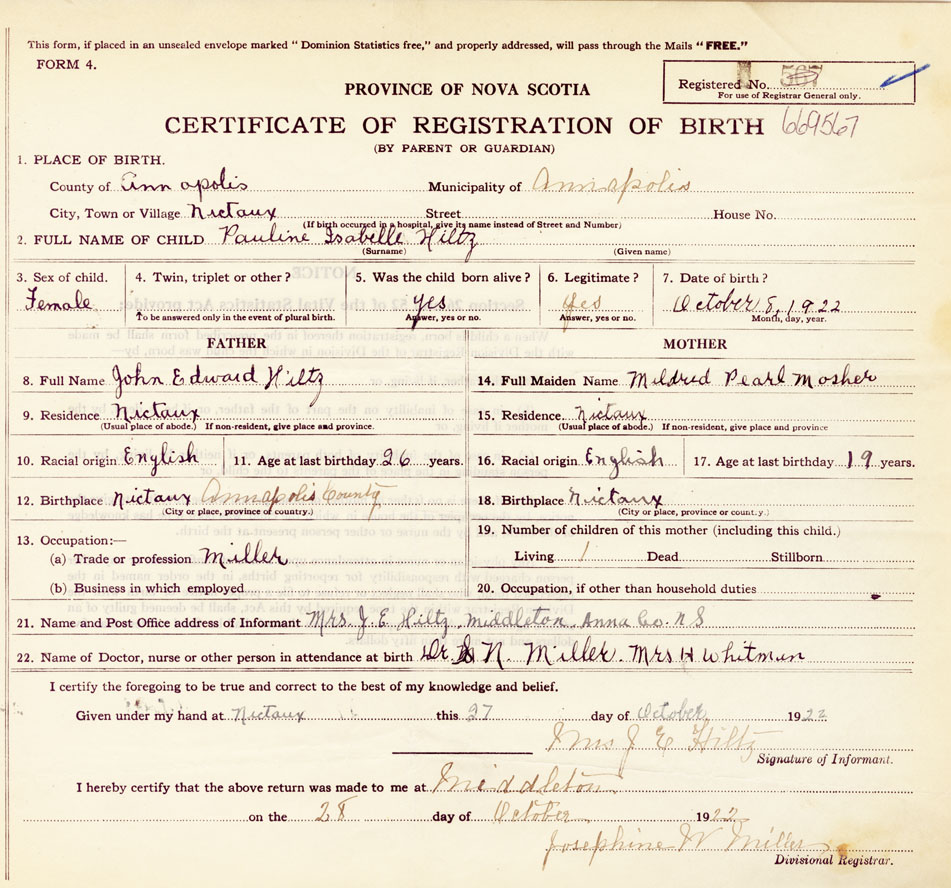 This form, if placed in an unsealed envelope marked "Dominion Statistics free," and properly addressed, will pass through the Mails "FREE."
FORM 4.
Registered No. 567
For use of Registrar General only.
PROVINCE OF NOVA SCOTIA
CERTIFICATE OF REGISTRATION OF BIRTH 669567
(BY PARENT OR GUARDIAN)
1. PLACE OF BIRTH.
County of Annapolis Municipality of Annapolis
City, Town or Village Nictaux Street House No.
(If birth occurred in a hospital, give its name instead of Street and Number)
2. FULL NAME OF CHILD Pauline Isabelle Hiltz
(Surname) (Given name)
3. Sex of child. 4. Twin, triplet or other? 5. Was the child born alive? 6. Legitimate? 7. Date of birth?
Female yes yes October 8, 1922
To be answered only in the event of plural birth. Answer, yes or no. Answer, yes or no. Month, day, year.
FATHER MOTHER
8. Full Name John Edward Hiltz 14. Full Maiden Name Mildred Pearl Mosher
9. Residence Nictaux 15. Residence. Nictaux
(Usual place of abode.) If non-resident, give place and province. (Usual place of abode.) If non-resident, give place and province
10. Racial origin English 11. Age at last birthday 26 years. 16. Racial origin English 17. Age at last birthday 19 years.
12. Birthplace Nictaux Annapolis County 18. Birthplace Nictaux
(City or place, province or country.) (City or place, province or county.)
13. Occupation:— 19. Number of children of this mother (including this child.)
(a) Trade or profession Miller Living 1 Dead Stillborn
(b) Business in which employed 20. Occupation, if other than household duties
21. Name and Post Office address of Informant Mrs. J. E Hiltz Middleton Anna Co. N S
22. Name of Doctor, nurse or other person in attendance at birth Dr. N. Miller Mrs H Whitman
I certify the foregoing to be true and correct to the best of my knowledge and belief.
Given under my hand at Nictaux this 27 day of October 1922
Mrs J E Hiltz
Signature of Informant.
I hereby certify that the above return was made to me at Middleton
on the 28 day of October 1922
Josephine W Miller
Divisional Registrar.